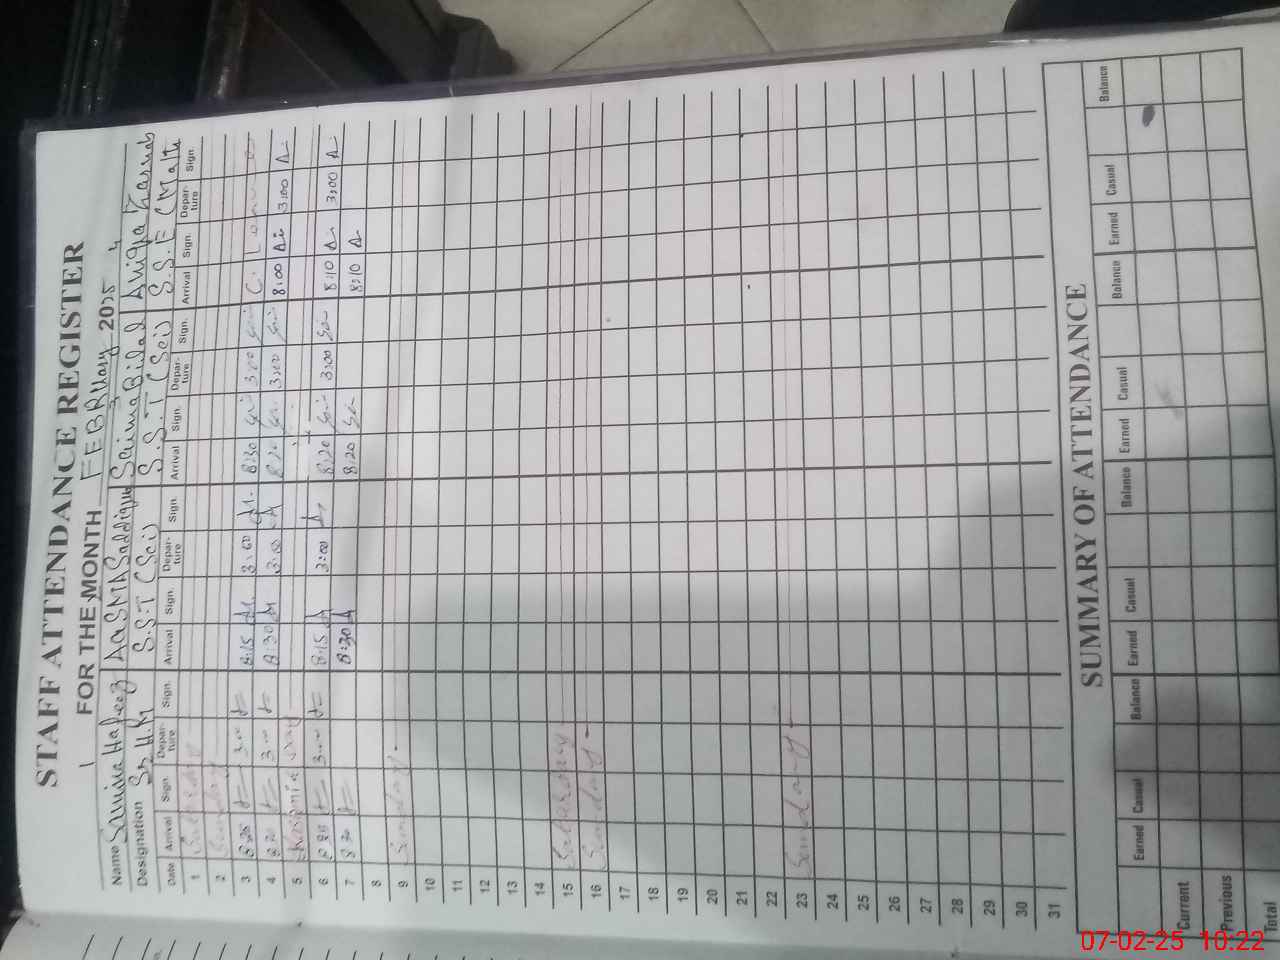 STAFF ATTENDANCE REGISTER
FOR THE MONTH FEBRUARY 2025
Name Samina Hafeez AASMA Saddique Saima Bilal Aniqa
Designation S.S.T (Sci) S.S.T (Sci) S.S.E (Math
Date Arrival Sign. Depar-ture Sign. Arrival Sign. Depar-ture Sign. Arrival Sign. Depar-ture Sign. Arrival Sign. Depar-ture Sign.
1 Saturday
2 Sunday
3 8:25 3:00 8:15 3:00 8:30 3:00 C. Leave
4 8:20 3:00 8:30 3:00 8:20 3:00 8:00 3:00
5 Kashmir Day
6 8:20 3:00 8:15 3:00 8:20 3:00 8:10 3:00
7 8:30 8:30 8:20 8:10
8
9 Sunday
10
11
12
13
14
15 Saturday
16 Sunday
17
18
19
20
21
22
23 Sunday
24
25
26
27
28
29
30
31
SUMMARY OF ATTENDANCE
Earned Casual Balance Earned Casual Balance Earned Casual Balance Earned Casual Balance
Current
Previous
Total
07-02-25 10:22